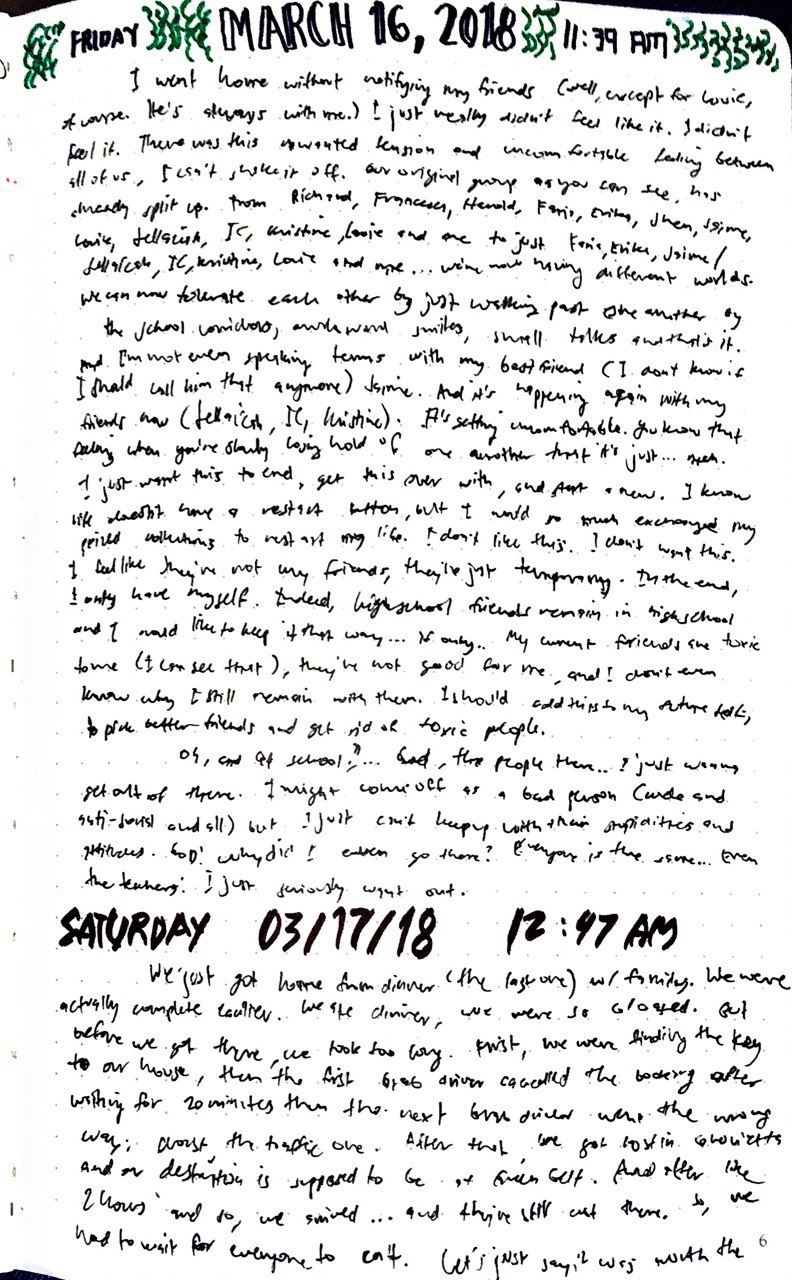 FRIDAY MARCH 16, 2018 11:39 AM
I went home without notifying my friends (well, except for Louie,
of course. He's always with me.) I just really didn't feel like it. I didn't
feel it. There was this unwanted tension and uncomfortable feeling between
all of us, I can't shake it off. Our original group as you can see, has
already split up. From Richard, Francesca, Harold, Faris, Erika, Shen, Jaime,
Louie, IC, Kristine, Louie and me to just Faris, Erika, Jaime/
IC, Kristine, Louie and me... we're now having different worlds.
We can now tolerate each other by just walking past one another by
the school corridors, awkward smiles, small talks and that's it.
And I'm not even speaking terms with my best friend (I don't know if
I should call him that anymore) Jaime. And it's happening again with my
friends now (IC, Kristine). It's getting uncomfortable. You know that
feeling when you're slowly losing hold of one another that it's just... meh.
I just want this to end, get this over with, and start anew. I know
life doesn't have a restart button, but I would so much exchanged my
prized collections to restart my life. I don't like this. I don't want this.
I feel like they're not my friends, they're just temporary. In the end,
I only have myself. Indeed, highschool friends remain in highschool
and I would like to keep it that way... if only.. My current friends are toxic
to me (I can see that), they're not good for me, and I don't even
know why I still remain with them. I should add this to my future
to pick better friends and get rid of toxic people.
Oh, and at school?... God, the people there.. I just wanna
get out of there. I might come off as a bad person (rude and
anti-social and all) but I just can't keep up with their stupidities and
attitudes. God! Why did I even go there? Everyone is the same... Even
the teachers! I just seriously want out.
SATURDAY 03/17/18 12:47 AM
We just got home from dinner (the last one) w/ family. We were
actually complete earlier. We ate dinner, we were so But
before we got there, we took too long. First, we were finding the key
to our house, then the first Grab driver cancelled the booking after
waiting for 20 minutes then the next Grab driver went the wrong
way; the traffic one. After that, we got lost in
and our destination is supposed to be at Green Belt. And after like
2 hours and so, we arrived... and they're still not there. So, we
had to wait for everyone to eat. Let's just say it was worth the
6